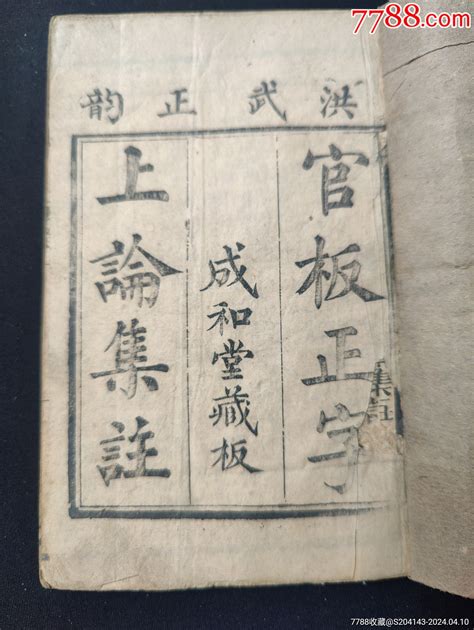 7788.com
洪武正韵
官板正字
成和堂藏板
上論集註
集註
7788收藏@S204143-2024.04.10